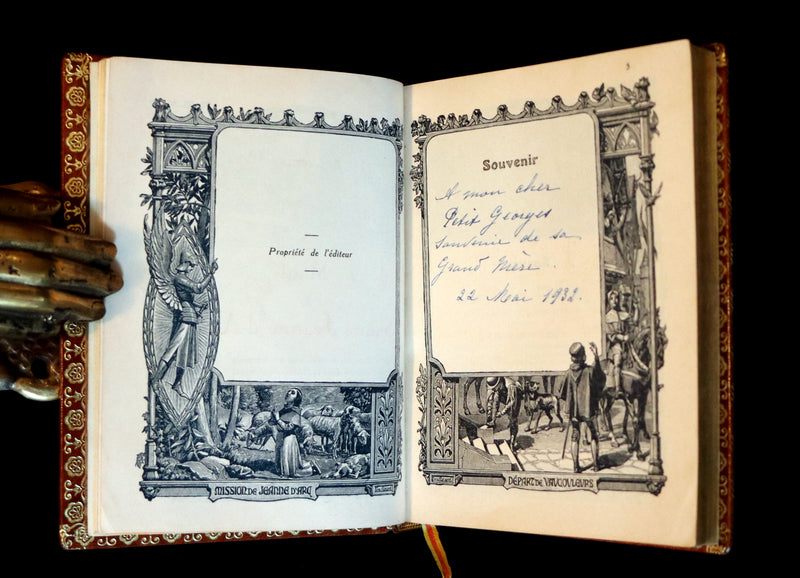 Propriété de l'éditeur
MISSION DE JEANNE D'ARC
5
Souvenir
A mon cher
Petit Georges
Souvenir de sa
Grand Mère.
22 Mai 1932.
DÉPART DE VAUCOULEURS